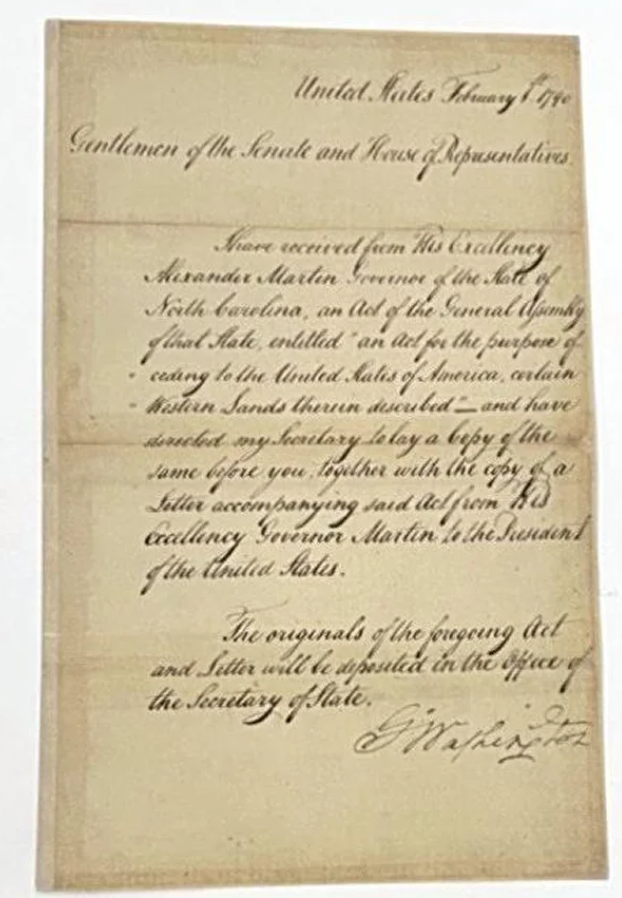 United States February 1st 1790
Gentlemen of the Senate and House of Representatives.
I have received from His Excellency
Alexander Martin Governor of the State of
North Carolina, an Act of the General Assembly
of that State, entitled "an Act for the purpose of
" ceding to the United States of America, certain
" Western Lands therein described" — and have
directed my Secretary to lay a Copy of the
same before you, together with the copy of a
Letter accompanying said Act from His
Excellency Governor Martin to the President
of the United States.
The originals of the foregoing Act
and Letter will be deposited in the Office of
the Secretary of State.
G. Washington